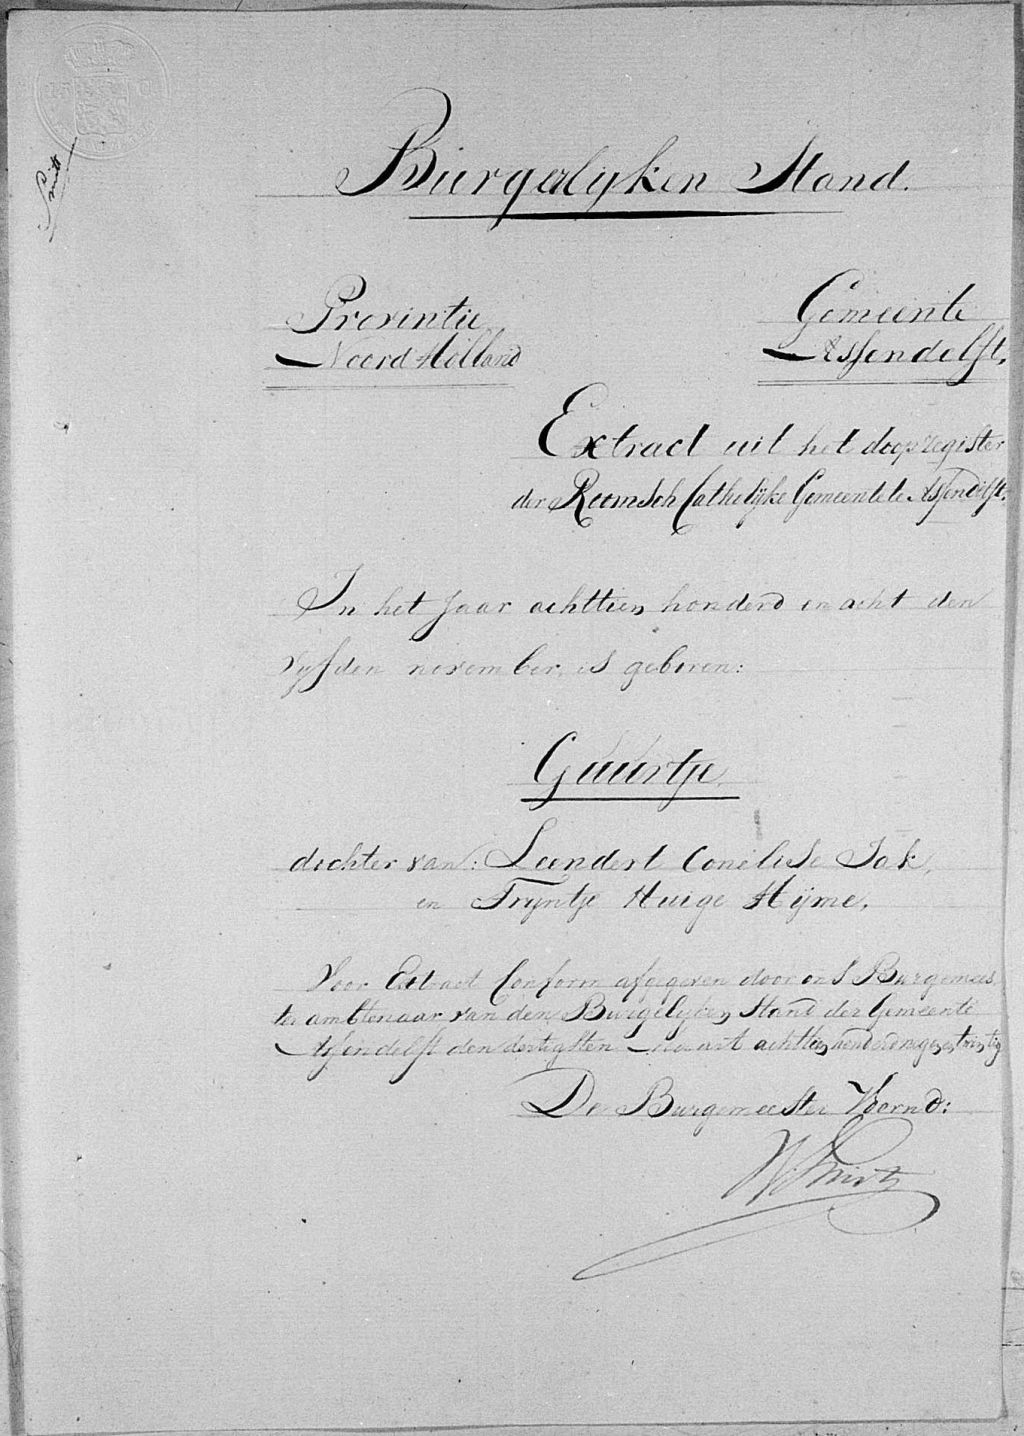 Smit
Burgerlyken Stand.
Provintie Gemeente
Noord-Holland Assendelft,
Extract uit het doopregister
der Roomsch Catholijke Gemeente te Assendelft.
In het Jaar achttien honderd en acht den
vyfden november, is geboren:
Guurtje
dochter van: Leendert Cornelisse Jak,
en Tryntje Huige Hijme,
Voor Extract Conform afgegeven door ons Burgemees
ter ambtenaar van den Burgelyken Stand der Gemeente
Assendelft den dertigsten maart achttien honderd
De Burgemeester Voornd:
Smit